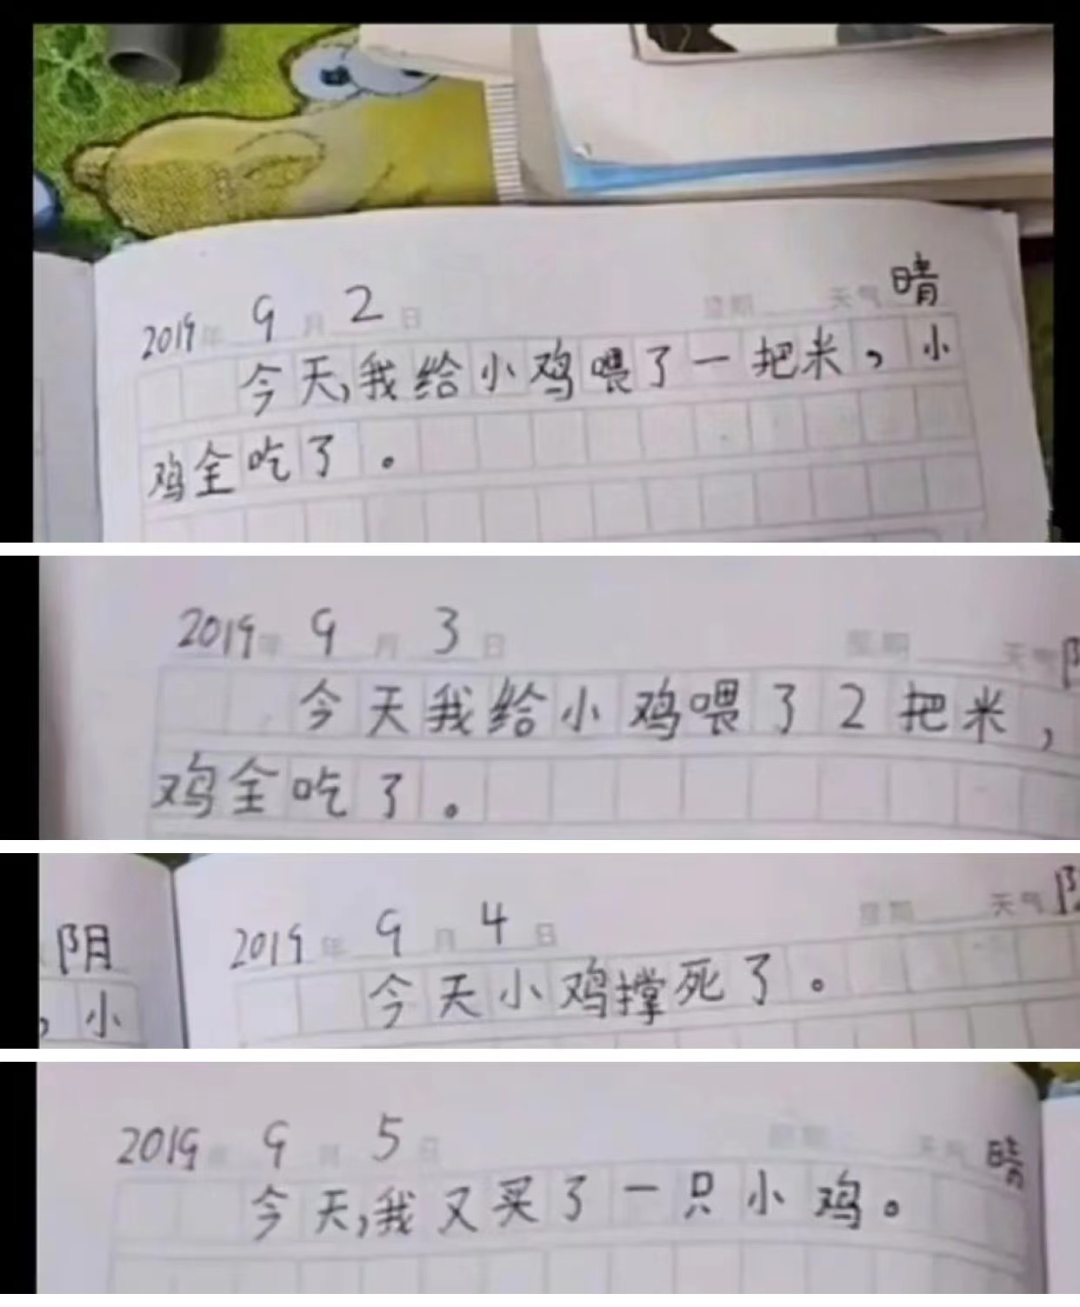 2019年 9月 2日 星期 天气 晴
今天,我给小鸡喂了一把米,小
鸡全吃了。
2019年 9月 3日 星期 天气
今天我给小鸡喂了2把米,
鸡全吃了。
阴
,小
2019年 9月 4日 星期 天气
今天小鸡撑死了。
2019年 9月 5日 星期 天气 晴
今天,我又买了一只小鸡。